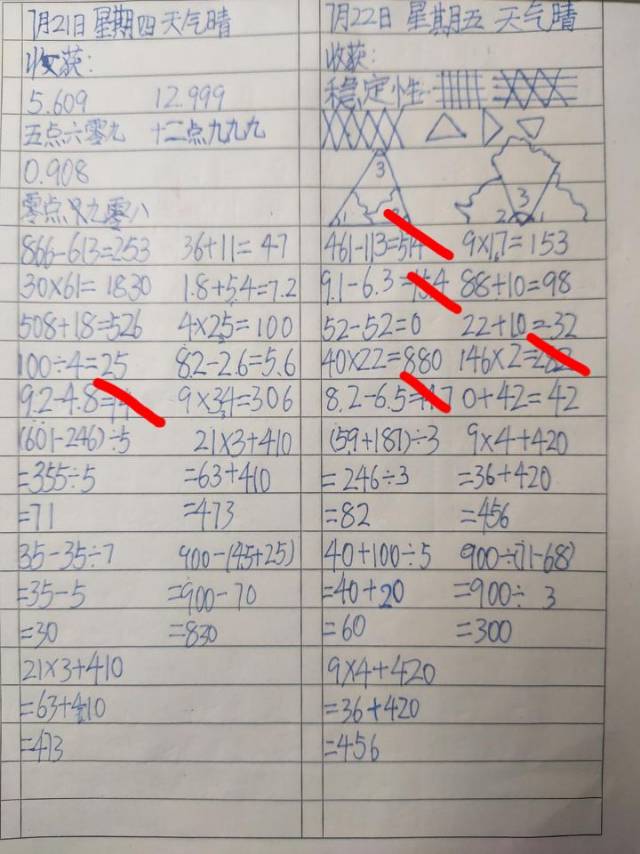 7月21日 星期四 天气晴
收获:
5.609 12.999
五点六零九 十二点九九九
0.908
零点 九零八
866-613=253 36+11=47
30×61=1830 1.8+5.4=7.2
508+18=526 4×25=100
100÷4=25 8.2-2.6=5.6
9.2-4.8= 9×34=306
(601-246)÷5 21×3+410
=355÷5 =63+410
=71 =473
35-35÷7 900-(45+25)
=35-5 =900-70
=30 =830
21×3+410
=63+410
=473
7月22日 星期五 天气晴
收获:
稳定性
3
1
3
2 1
461-113=514 9×1.7=153
9.1-6.3=15.4 88+10=98
52-52=0 22+10=32
40×22=880 146×2=282
8.2-6.5= 0+42=42
(59+187)÷3 9×4+420
=246÷3 =36+420
=82 =456
40+100÷5 900÷(71-68)
=40+20 =900÷3
=60 =300
9×4+420
=36+420
=456